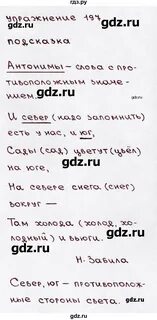 gdz.ru
упражнение 194
подсказка
gdz.ru
Антонимы – слова с про-
тивоположным значе-
нием.
gdz.ru
И север (надо запомнить)
есть у нас, и юг,
gdz.ru
Сады (сад) цветут (цвёл)
на юге,
gdz.ru
На севере снега (снег)
вокруг —
gdz.ru
Там холода (холод, хо-
лодный) и вьюги.
gdz.ru
Н. Забила
gdz.ru
Север, юг – противополож-
ные стороны света.
gdz.ru